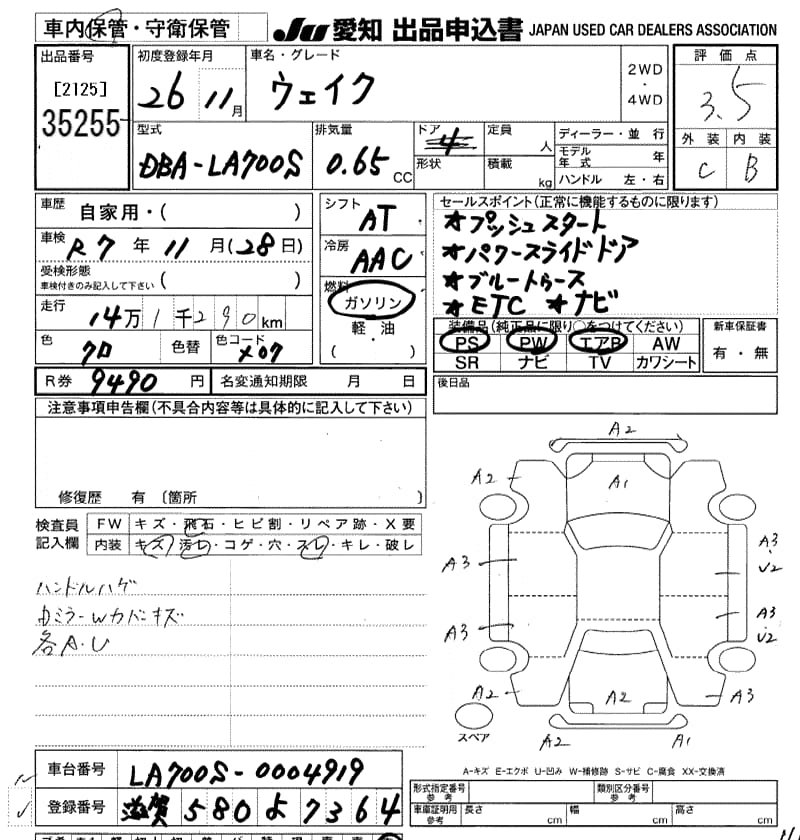 車内保管・守衛保管
JU 愛知 出品申込書 JAPAN USED CAR DEALERS ASSOCIATION
出品番号
[2125]
35255
初度登録年月
26 11月
車名・グレード
ウェイク
2WD
・
4WD
評価点
3.5
外装 内装
C B
型式
DBA-LA700S
排気量
0.65 CC
ドア
4
形状
定員 人
積載 kg
ディーラー・並行
モデル年式 年
ハンドル 左・右
車歴
自家用・( )
車検
R7年11月(28日)
受検形態
車検付きのみ記入して下さい ( )
走行
14万1千290km
色
クロ
色替
色コード
X07
シフト
AT
冷房
AAC
燃料
ガソリン
軽・油
( )
セールスポイント(正常に機能するものに限ります)
★プッシュスタート
★パワースライドドア
★ブルートゥース
★ETC ★ナビ
装備品(純正品に限り○をつけてください)
PS PW エアB AW
SR ナビ TV カワシート
新車保証書
有・無
R券 9490円 名変通知期限 月 日
後日品
注意事項申告欄(不具合内容等は具体的に記入して下さい)
修復歴 有 〔箇所 〕
検査員
記入欄
FW キズ・飛石・ヒビ割・リペア跡・X要
内装 キズ・汚し・コゲ・穴・スレ・キレ・破レ
ハンドルハゲ
ミラーWカバーキズ
各A・U
A2
A2 A1
A3 A3・U2
A3 A3・U2
A2 A2 A3
スペア
A2 A1
A-キズ E-エクボ U-凹み W-補修跡 S-サビ C-腐食 XX-交換済
車台番号 LA700S-0004919
登録番号 滋賀 580 よ 7364
形式指定番号
参考
類別区分番号
参考
車庫証明用
参考
長さ cm 幅 cm 高さ cm